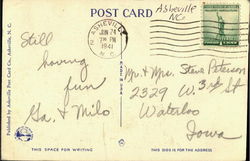 Asheville
NC
POST CARD
ASHEVILLE
JUN 24
7 PM
1941
N.C.
Still
having
fun
Ga. & Milo
Mr. & Mrs. Steve Peterson
2329 W. 3rd St
Waterloo
Iowa
Published by Asheville Post Card Co., Asheville, N. C.
THIS SPACE FOR WRITING
THIS SIDE IS FOR THE ADDRESS